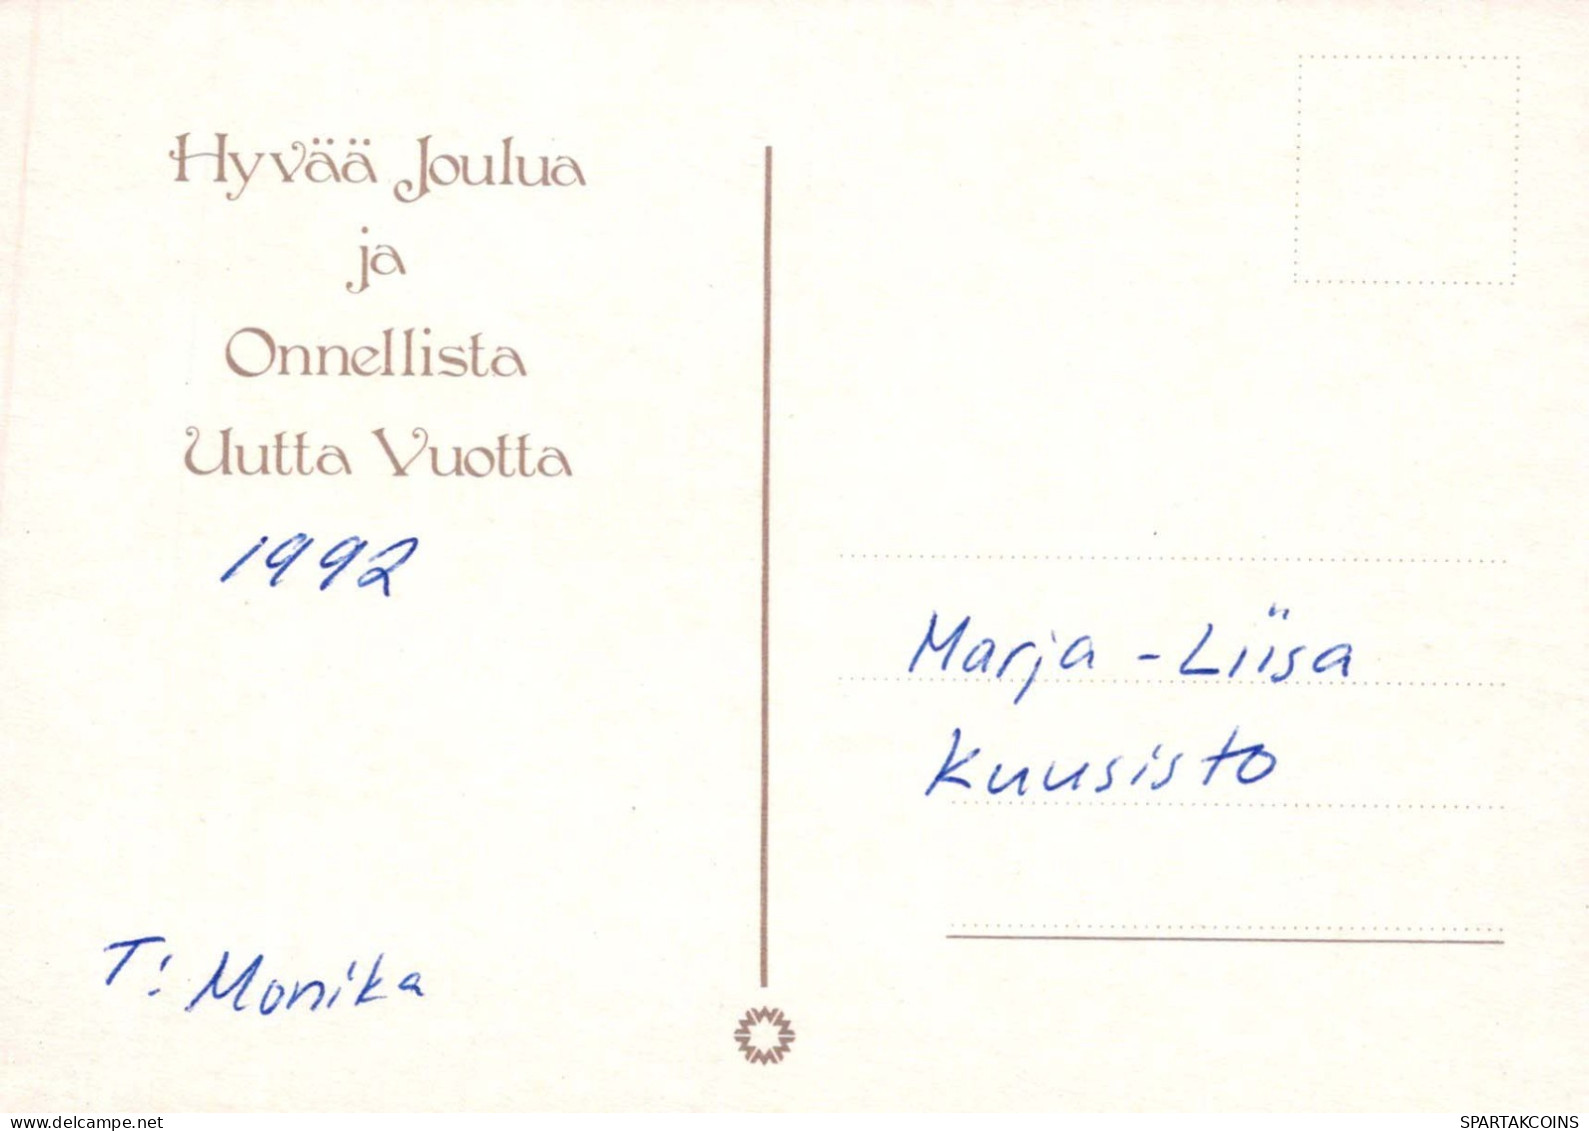 Hyvää Joulua
ja
Onnellista
Uutta Vuotta
1992
T: Monika
Marja-Liisa
Kuusisto
delcampe.net
SPARTAKCOINS